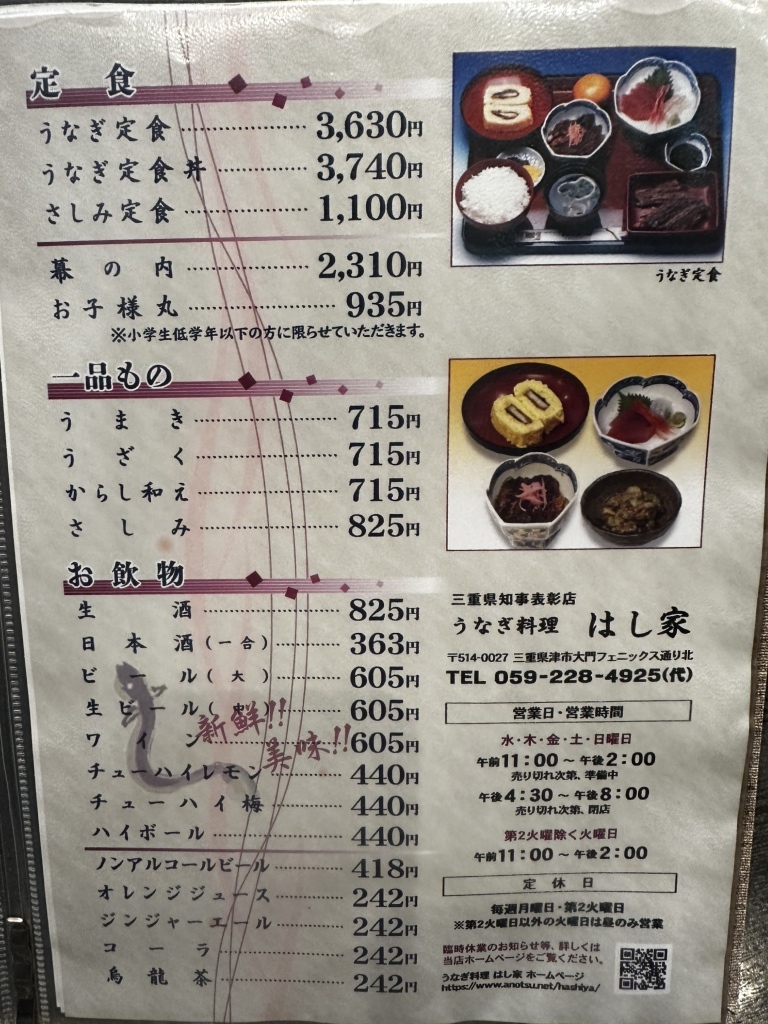 定食
うなぎ定食 3,630円
うなぎ定食丼 3,740円
さしみ定食 1,100円
幕の内 2,310円
お子様丸 935円
※小学生低学年以下の方に限らせていただきます。
一品もの
うまき 715円
うざく 715円
からし和え 715円
さしみ 825円
お飲物
生酒 825円
日本酒(一合) 363円
ビール(大) 605円
生ビール( ) 605円
ワイン 605円
チューハイレモン 440円
チューハイ梅 440円
ハイボール 440円
ノンアルコールビール 418円
オレンジジュース 242円
ジンジャーエール 242円
コーラ 242円
烏龍茶 242円
新鮮!!
美味!!
うなぎ定食
三重県知事表彰店
うなぎ料理 はし家
〒514-0027 三重県津市大門フェニックス通り北
TEL 059-228-4925(代)
営業日・営業時間
水・木・金・土・日曜日
午前11:00～午後2:00
売り切れ次第、準備中
午後4:30～午後8:00
売り切れ次第、閉店
第2火曜除く火曜日
午前11:00～午後2:00
定休日
毎週月曜日・第2火曜日
※第2火曜日以外の火曜日は昼のみ営業
臨時休業のお知らせ等、詳しくは
当店ホームページをご覧ください。
うなぎ料理 はし家 ホームページ
https://www.anotsu.net/hashiya/